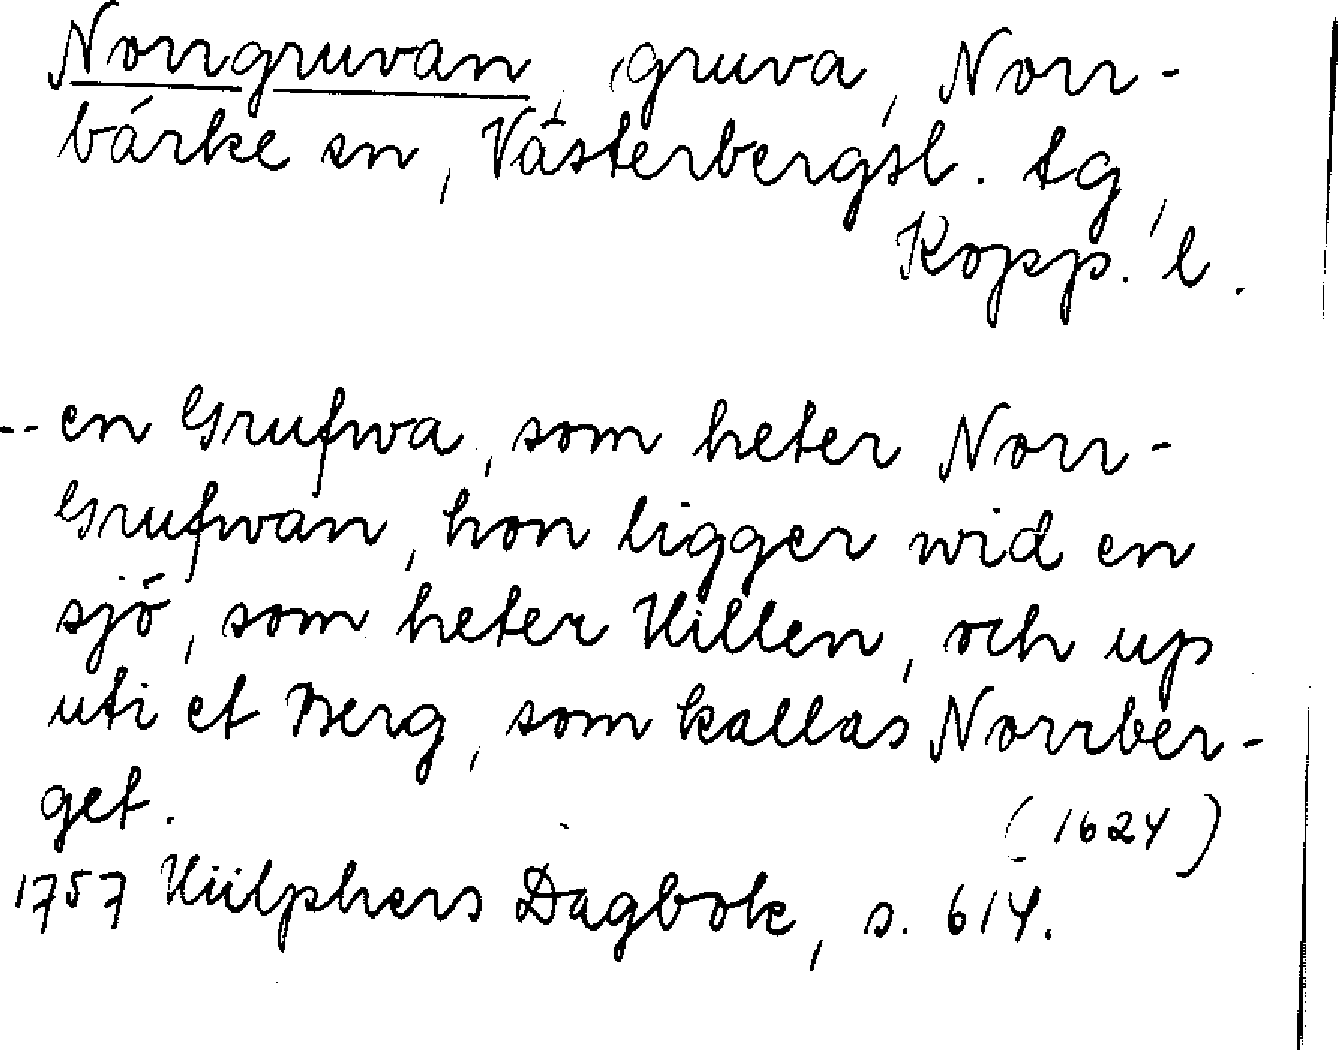 Norrgruvan, gruva, Norr-
bärke sn, Västerbergsl. tg,
Kopp. l.
-- en Grufwa, som heter Norr-
Grufwan, hon ligger wid en
sjö, som heter Hillen, och up
uti et Berg, som kallas Norrber-
get.
(1624)
1757 Hülphers Dagbok, s. 614.